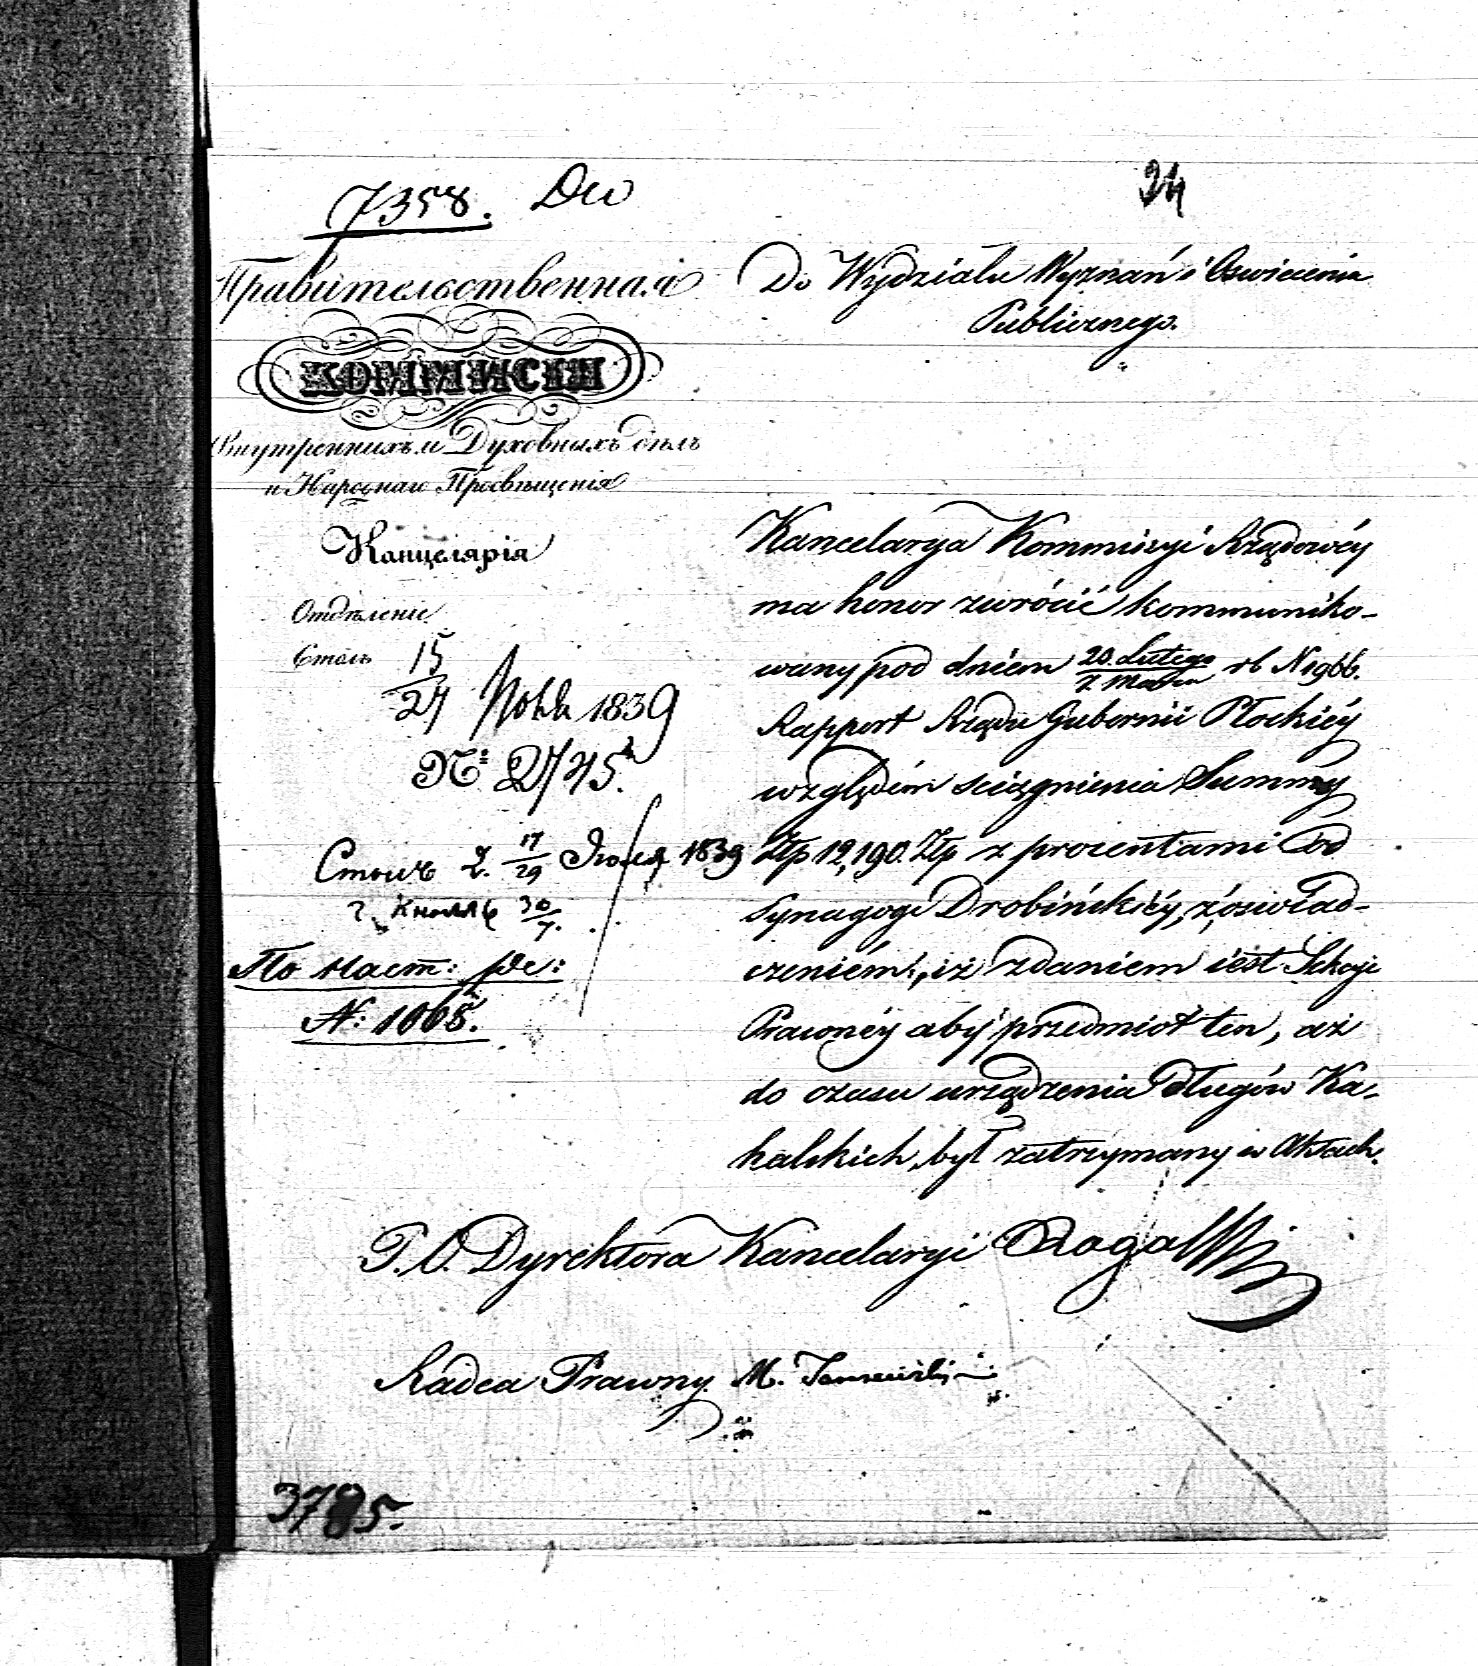 7358.
24
Правительственная
КОММИСІЯ
Внутреннихъ и Духовныхъ дѣлъ
и Народнаго Просвѣщенія
Канцелярія
Отдѣленіе
Столъ
15/27 1839
№ 2745.
17/29 Іюля 1839
30/7.
По наст: ре:
N: 1065.
Do Wydziału Wyznań i Oswiecenia
Publicznego.
Kancelarya Kommissyi Rządowéy
ma honor zwrócić kommuniko-
wany pod dniem 20 Lutego/7. Marca rb N 1966.
Rapport Rządu Gubernii Płockiéy
względem sciągnienia Summy
Złp 12,190. Złp z procentami od
Synagogi Drobińskiéy, z oswiad-
czeniém, iż zdaniem iest Sekcyi
Prawnéy aby przedmiot ten, aż
do czasu urządzenia długów Ka-
halskich, był zatrzymany w Aktach.
P. O. Dyrektora Kancelaryi Rogalski
Radca Prawny M.
3785.